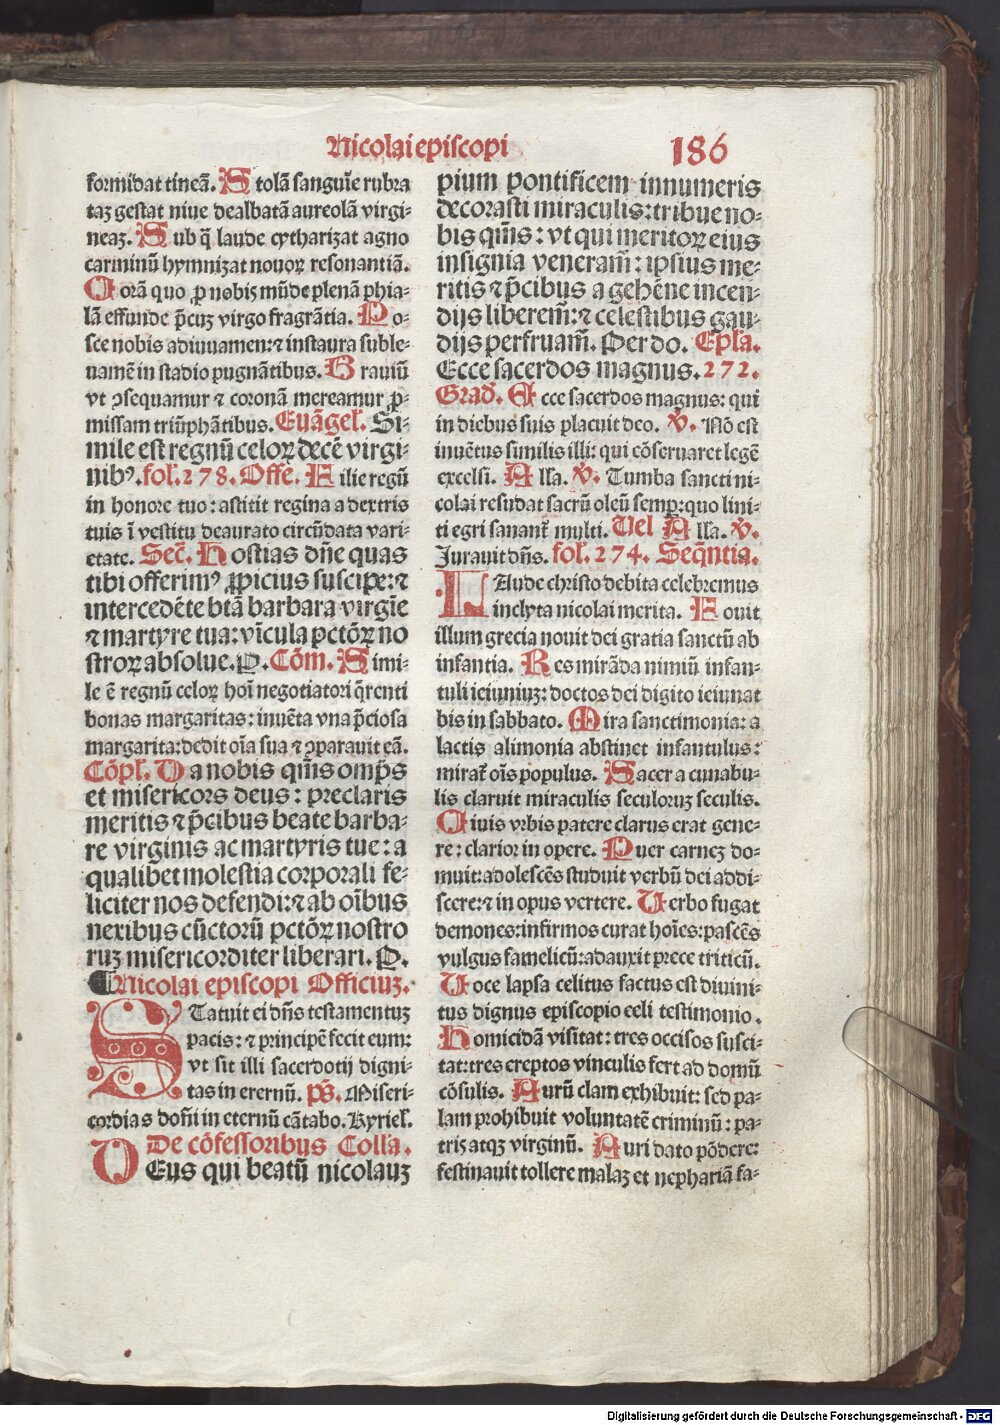 Nicolai episcopi 186
formidat tineã. Stolã sanguīe rubra
taʒ gestat niue dealbatã aureolã virgi-
neaʒ. Sub q̃ laude cytharizat agno
carminũ hymnizat nouoꝝ resonantiã.
Corã quo ꝓ nobis mũde plenã phia-
lã effunde p̃cuʒ virgo fragrãtia. Po-
sce nobis adiuuamen: ⁊ instaura suble-
uamẽ in stadio pugnãtibus. Brauiũ
vt ↄsequamur ⁊ coronã mereamur ꝓ-
missam triũphãtibus. Euãgel'. Si-
mile est regnũ celoꝝ decẽ virgi-
nibꝰ. fol'. 278. Offe. Filie regũ
in honore tuo: astitit regina a dextris
tuis ĩ vestitu deaurato circũdata vari-
etate. Sec̃. Hostias dñe quas
tibi offerimꝰ ꝓpicius suscipe: ⁊
intercedẽte btã barbara virgīe
⁊ martyre tua: vīcula pctõꝝ no
stroꝝ absolue. P. Cõm. Simi-
le ẽ regnũ celoꝝ hoĩ negotiatori q̃renti
bonas margaritas: inuẽta vna p̃ciosa
margarita: dedit oĩa sua ⁊ ↄparauit eã.
Cõpl'. Da nobis qm̃s omp̃s
et misericors deus: preclaris
meritis ⁊ p̃cibus beate barba-
re virginis ac martyris tue: a
qualibet molestia corporali fe-
liciter nos defendi: ⁊ ab oĩbus
nexibus cũctorũ pctõꝝ nostro
ruʒ misericorditer liberari. P.
¶ Nicolai episcopi Officiuʒ.
STatuit ei dñs testamentuʒ
pacis: ⁊ principẽ fecit eum:
vt sit illi sacerdotij digni-
tas in eternũ. ps̃. Miseri-
cordias dom̃i in eternũ cãtabo. Kyriel'.
De cõfessoribus Colla.
DEus qui beatũ nicolauʒ
pium pontificem innumeris
decorasti miraculis: tribue no-
bis qm̃s: vt qui meritoꝝ eius
insignia veneram̃: ipsius me-
ritis ⁊ p̃cibus a gehẽne incen-
dijs liberem̃: ⁊ celestibus gau-
dijs perfruam̃. Per do. Epl'a.
Ecce sacerdos magnus. 272.
Grad'. Ecce sacerdos magnus: qui
in diebus suis placuit deo. ℣. Nõ est
inuẽtus similis illi: qui cõseruaret legẽ
excelsi. Alla. ℣. Tumba sancti ni-
colai resudat sacrũ oleũ semp̱: quo lini-
ti egri sanant᷑ multi. Uel Alla. ℣.
Jurauit dñs. fol'. 274. Seqñtia.
LAude christo debita celebremus
inclyta nicolai merita. Fouit
illum grecia nouit dei gratia sanctũ ab
infantia. Res mirãda nimiũ infan-
tuli ieiuniuʒ: doctos dei digito ieiunat
bis in sabbato. Mira sanctimonia: a
lactis alimonia abstinet infantulus:
mirat᷑ oĩs populus. Sacer a cunabu-
lis claruit miraculis seculoruʒ seculis.
Ciuis vrbis patere clarus erat gene-
re: clarior in opere. Puer carneʒ do-
muit: adolescẽs studuit verbũ dei addi-
scere: ⁊ in opus vertere. Uerbo fugat
demones: infirmos curat hoĩes: pascẽs
vulgus famelicũ: adauxit prece triticũ.
Uoce lapsa celitus factus est diuini-
tus dignus episcopio celi testimonio.
Homicidã visitat: tres occisos susci-
tat: tres ereptos vinculis fert ad domũ
cõsulis. Aurũ clam exhibuit: sed pa-
lam prohibuit voluntatẽ criminũ: pa-
tris atqʒ virginũ. Auri dato põdere:
festinauit tollere malaʒ et nephariã fa-
Digitalisierung gefördert durch die Deutsche Forschungsgemeinschaft - DFG